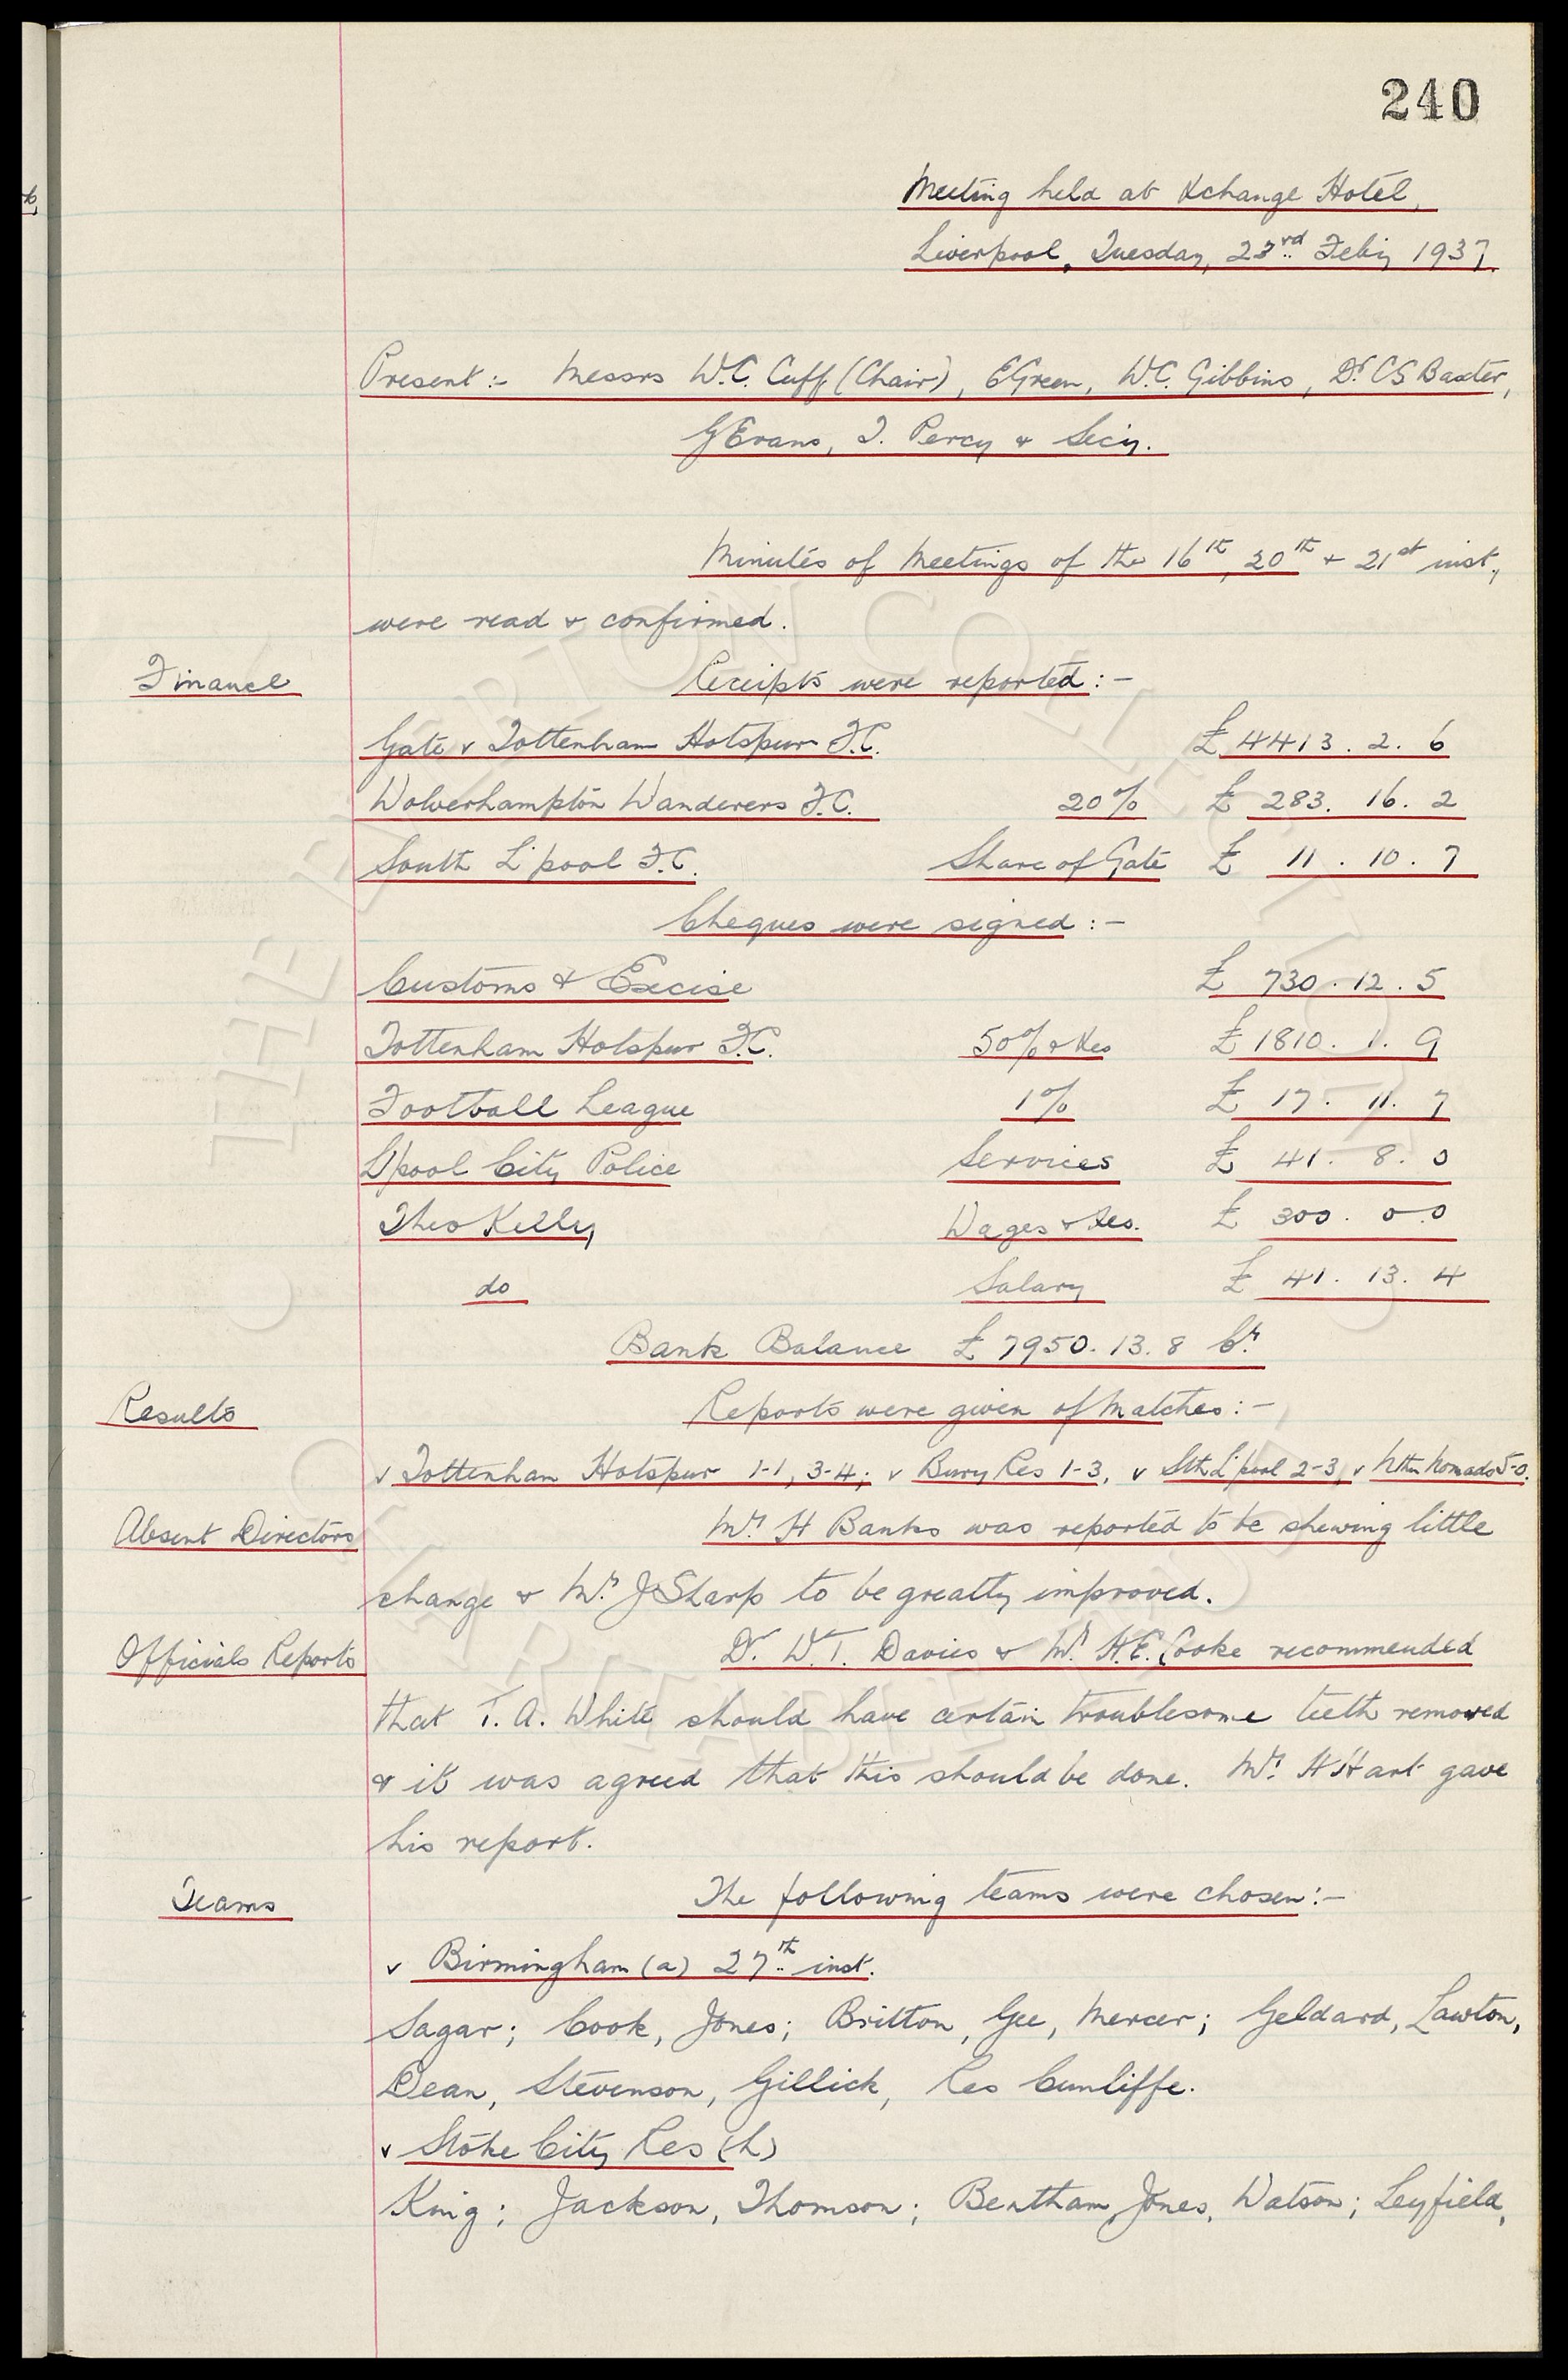 240
Meeting held at Xchange Hotel,
Liverpool, Tuesday, 23rd Feb'y 1937.
Present :- Messrs W.C. Cuff (Chair), E Green, W.C. Gibbins, Dr. CS Baxter,
G Evans, T. Percy & Sec'y.
Minutes of Meetings of the 16th, 20th & 21st inst,
were read & confirmed.
Finance Receipts were reported :-
Gate v Tottenham Hotspur F.C. £ 4413. 2. 6
Wolverhampton Wanderers F.C. 20% £ 283. 16. 2
South L'pool F.C. Share of Gate £ 11. 10. 7
Cheques were signed :-
Customs & Excise £ 730. 12. 5
Tottenham Hotspur F.C. 50% & Xes £ 1810. 1. 9
Football League 1% £ 17. 11. 7
L'pool City Police Services £ 41. 8. 0
Theo Kelly Wages & Xes. £ 300. 0.0
do Salary £ 41. 13. 4
Bank Balance £ 7950. 13. 8 Cr.
Results Reports were given of Matches :-
v Tottenham Hotspur 1-1, 3-4; v Bury Res 1-3, v Sth L'pool 2-3, v Nthn Nomads 5-0.
Absent Directors Mr. H Banks was reported to be shewing little
change & Mr. J Sharp to be greatly improved.
Officials Reports Dr. W.T. Davies & Mr. H.E. Cooke recommended
that T.A. White should have certain troublesome teeth removed
& it was agreed that this should be done. Mr. H Hart gave
his report.
Teams The following teams were chosen :-
v Birmingham (a) 27th inst.
Sagar; Cook, Jones; Britton, Gee, Mercer; Geldard, Lawton,
Dean, Stevenson, Gillick, Res Cunliffe.
v Stoke City Res (h)
King; Jackson, Thomson; Bentham, Jones, Watson; Leyfield,